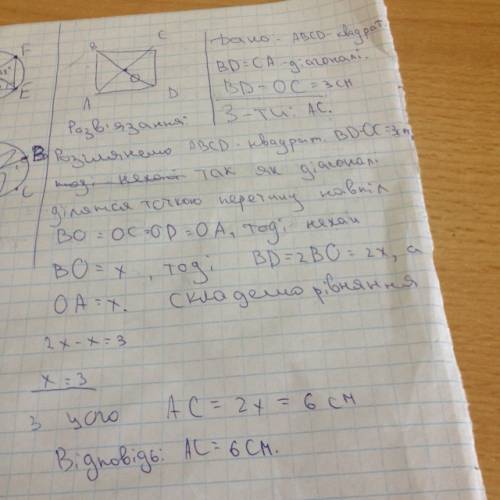 F
E
B
C
B
C
O
A
D
Дано: ABCD - квадрат.
BD = CA - діагоналі.
BD - OC = 3 см
З-ти: AC.
Розв'язання:
Розглянемо ABCD - квадрат. BD-OC=3см
так як діагоналі
ділятся точкою перетину навпіл
BO = OC = OD = OA, тоді нехай
BO = x, тоді BD = 2BO = 2x, а
OA = x. Складемо рівняння
2x - x = 3
x = 3
З цього AC = 2x = 6 см
Відповідь: AC = 6 см.